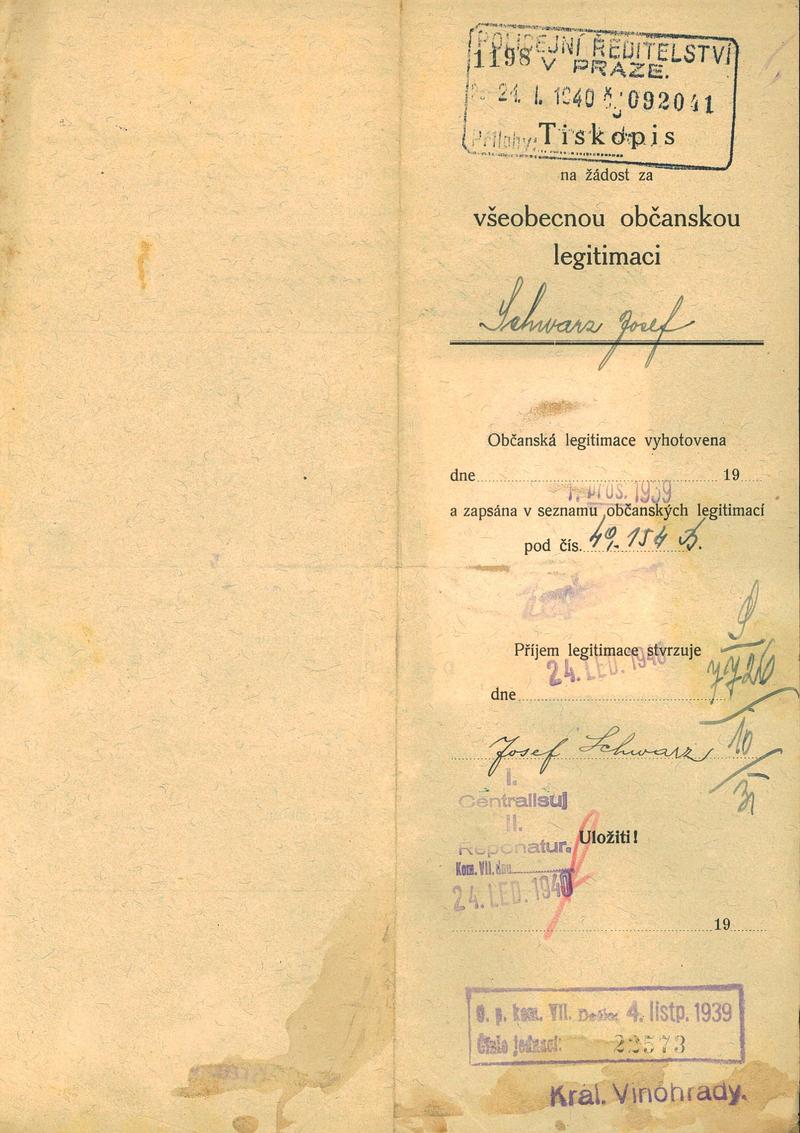 POLICEJNÍ ŘEDITELSTVÍ
1198 V PRAZE.
24. I. 1940 č. 092041
Přílohy:
Tiskopis
na žádost za
všeobecnou občanskou
legitimaci
Schwarz Josef
Občanská legitimace vyhotovena
dne 19
1. pros. 1939
a zapsána v seznamu občanských legitimací
pod čís. 49.154
Příjem legitimace stvrzuje
24. LED. 1940
dne
7726
10
Josef Schwarz
I.
Centralisuj
II.
Reponatur.
Uložiti!
Kom. VII. dne
24. LED. 1940
19
o. p. kom. VII. Došlo: 4. listp. 1939
Číslo jednací: 22573
Král. Vinohrady.